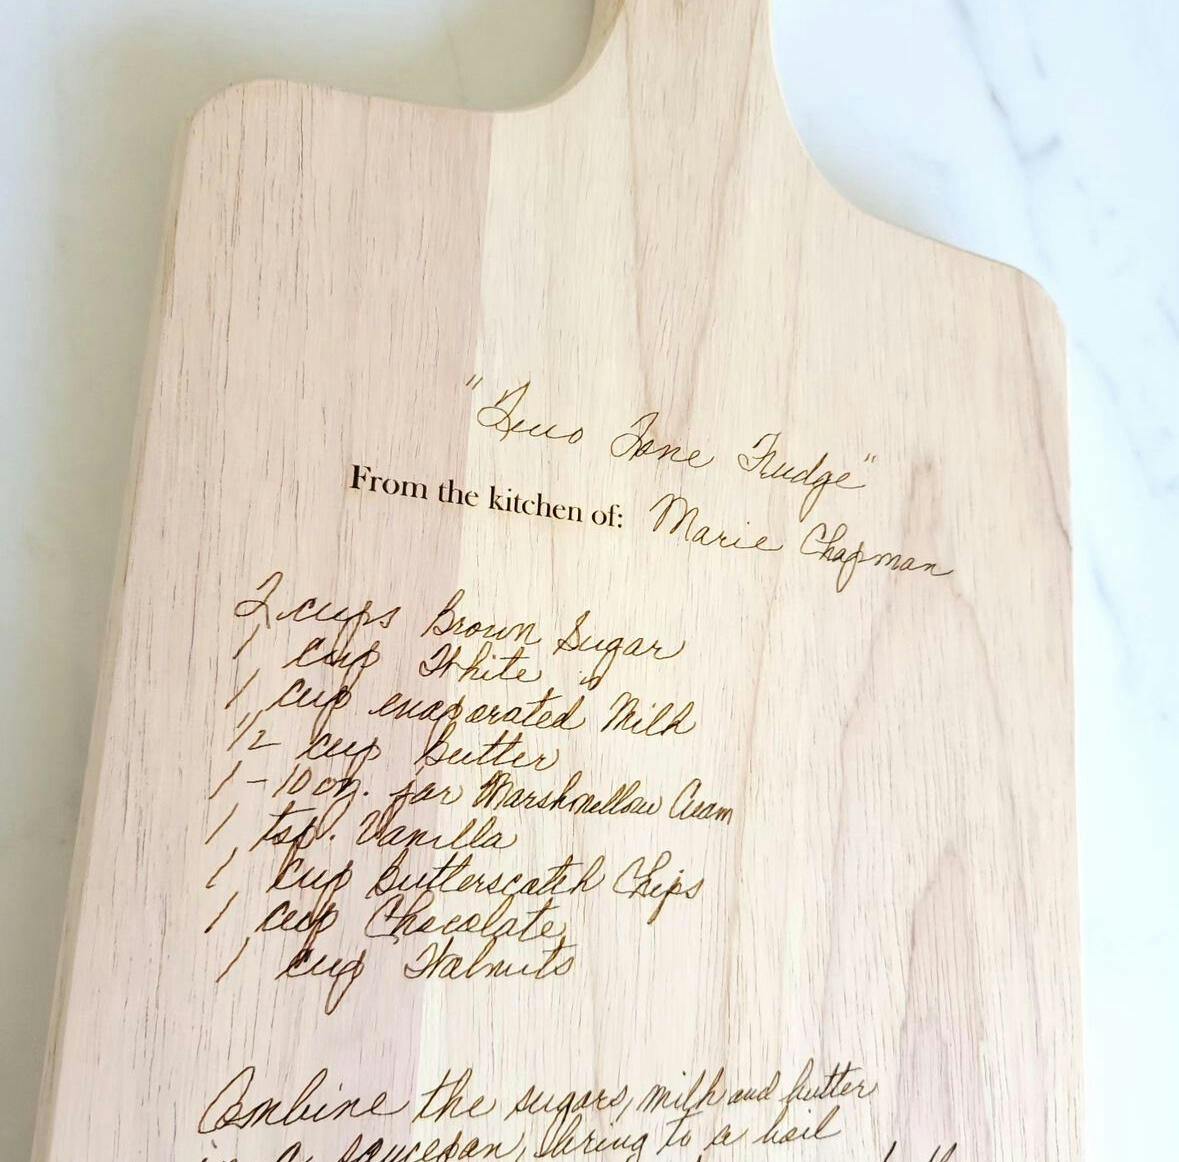 "Two Tone Fudge"
From the kitchen of: Marie Chapman
2 cups Brown Sugar
1 cup White "
1 cup evaporated Milk
1/2 cup butter
1 - 10 oz. jar Marshmellow Cream
1 tsp. Vanilla
1 cup Butterscotch Chips
1 cup Chocolate "
1 cup Walnuts
Combine the sugars, milk and butter
in a saucepan, bring to a boil